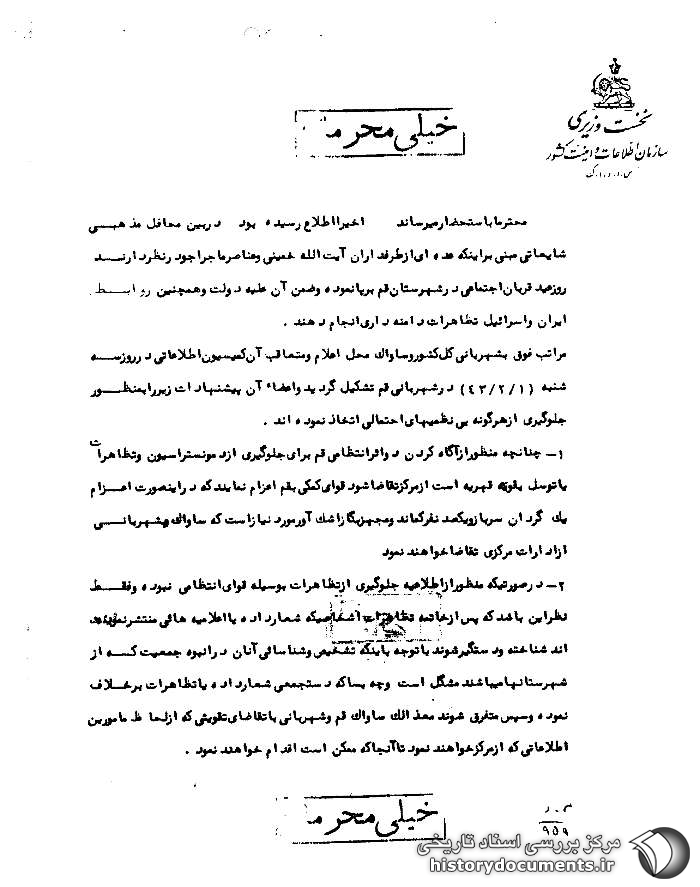 نخست وزیری
سازمان اطلاعات و امنیت کشور
س.ا.و.ا.ک
خیلی محرما
محترما باستحضار میرساند اخیرا اطلاع رسیده بود در بین محافل مذهبی
شایعاتی مبنی براینکه عده ای از طرفداران آیت الله خمینی وعناصر ماجراجو در نظر دارند
روز عید قربان اجتماعی در شهرستان قم برپا نموده وضمن آن علیه دولت وهمچنین روابط
ایران واسرائیل تظاهرات دامنه داری انجام دهند .
مراتب فوق بشهربانی کل کشور وساواک محل اعلام ومتعاقب آن کمیسیون اطلاعاتی در روز سه
شنبه (٤٣/٢/١) در شهربانی قم تشکیل گردید واعضاء آن پیشنهادات زیر را بمنظور
جلوگیری از هرگونه بی نظمیهای احتمالی اتخاذ نموده اند .
١ـ چنانچه منظور از آگاه کردن دوائر انتظامی قم برای جلوگیری از دمونستراسیون وتظاهرات
با توسل بقوه قهریه است از مرکز تقاضا شود قوای کمکی بقم اعزام نمایند که در اینصورت اعزام
یك گردان سرباز ویکصد نفر کماندو مجهز بگاز اشك آور مورد نیاز است که ساواك وشهربانی
از ادارات مرکزی تقاضا خواهند نمود
٢ـ در صورتیکه منظور از اطلاعیه جلوگیری از تظاهرات بوسیله قوای انتظامی نبوده وفقط
نظر این باشد که پس از خاتمه تظاهرات اشخاصیکه شعار داده یا اعلامیه هائی منتشر نموده
اند شناخته ودستگیر شوند با توجه باینکه تشخیص وشناسائی آنان در انبوه جمعیت کسه از
شهرستانها میباشند مشگل است وچه بسا که دستجمعی شعار داده یا تظاهرات برخلاف
نموده وسپس متفرق شوند معذالك ساواك قم وشهربانی با تقاضای تقویتی که از لحاظ مامورین
اطلاعاتی که از مرکز خواهند نمود تا آنجا که ممکن است اقدام خواهند نمود .
خیلی محرما
٩٥٩
مرکز بررسی اسناد تاریخی
historydocuments.ir